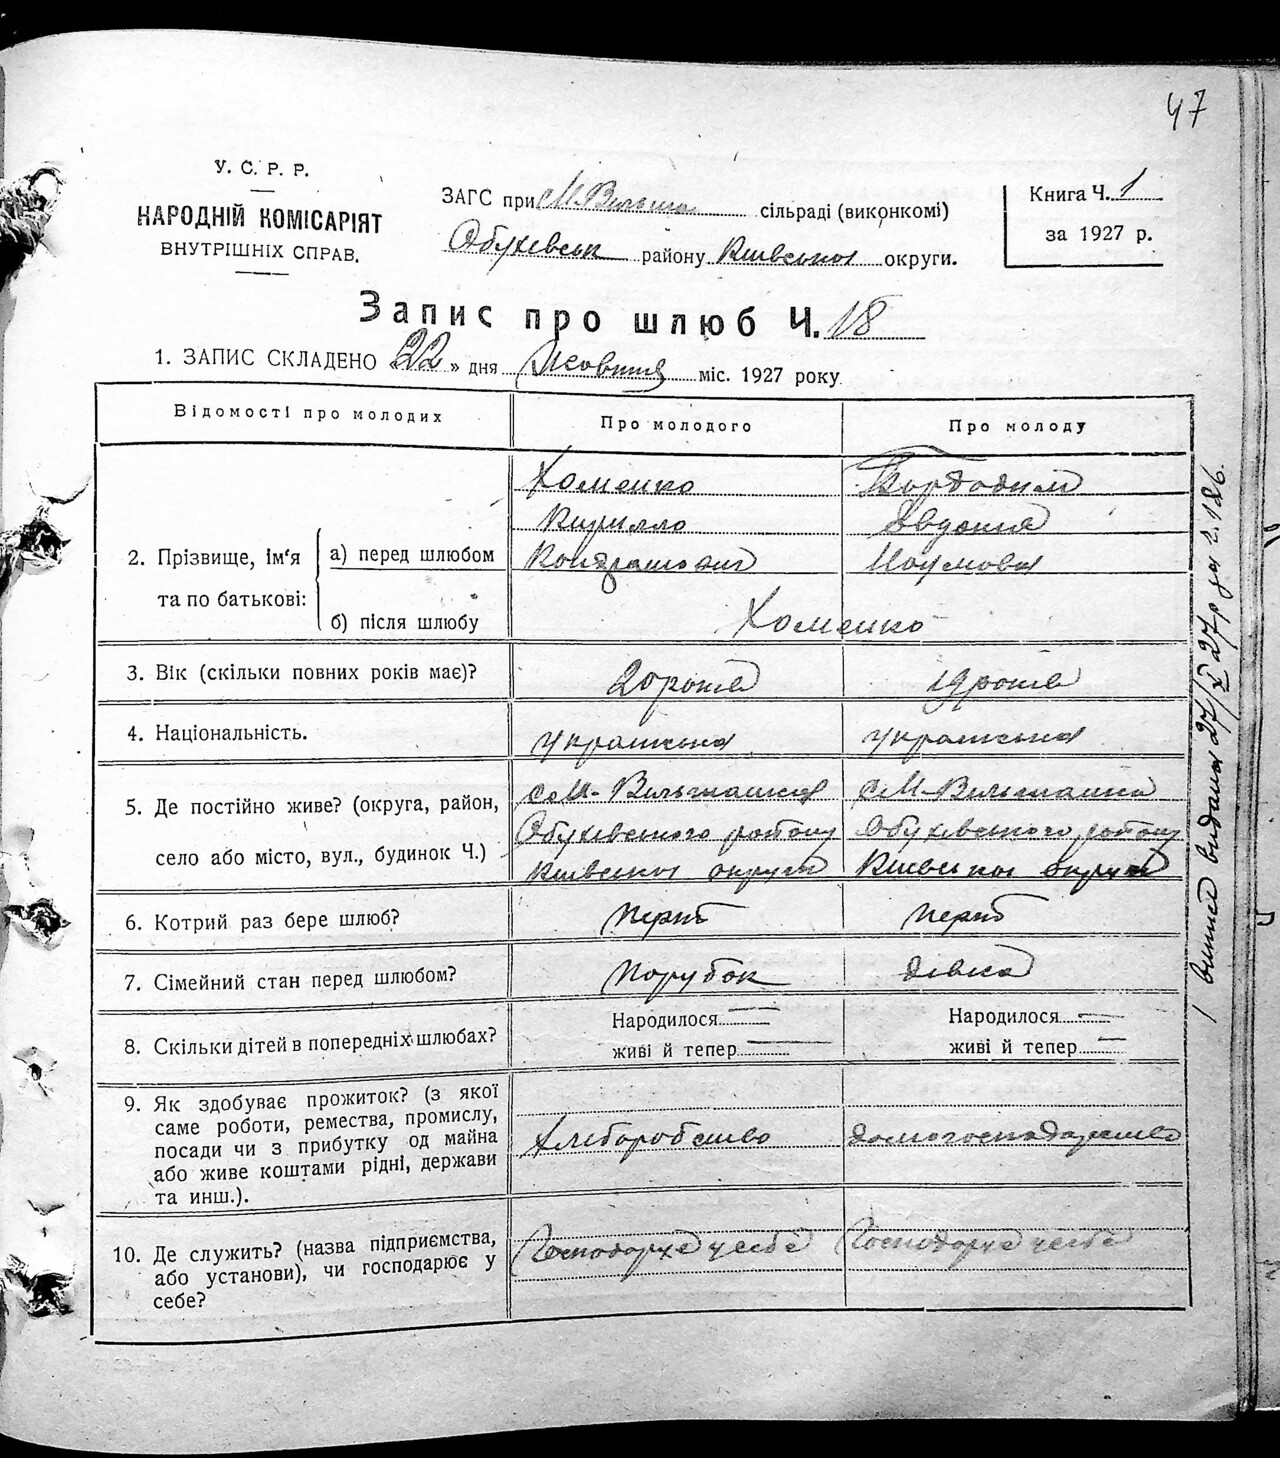 47
У. С. Р. Р.
НАРОДНІЙ КОМІСАРІЯТ
ВНУТРІШНІХ СПРАВ.
ЗАГС при М-Вільша сільраді (виконкомі)
Обухівськ району Київської округи.
Книга Ч. 1
за 1927 р.
Запис про шлюб Ч. 18
1. ЗАПИС СКЛАДЕНО «22» дня Жовтня міс. 1927 року
Відомості про молодих
Про молодого
Про молоду
2. Прізвище, ім'я та по батькові:
а) перед шлюбом
Хоменко
Кирилло
Кондратович
Евдокия
Наумова
б) після шлюбу
Хоменко
3. Вік (скільки повних років має)?
20 років
19 років
4. Національність.
українська
українська
5. Де постійно живе? (округа, район,
село або місто, вул., будинок Ч.)
с М-Вільшанка
Обухівського району
Київської округи
с М-Вільшанка
Обухівського району
Київської округи
6. Котрий раз бере шлюб?
перший
перший
7. Сімейний стан перед шлюбом?
парубок
дівка
8. Скільки дітей в попередніх шлюбах?
Народилося —
живі й тепер —
Народилося —
живі й тепер —
9. Як здобуває прожиток? (з якої
саме роботи, ремества, промислу,
посади чи з прибутку од майна
або живе коштами рідні, держави
та инш.).
Хліборобство
домогосподарство
10. Де служить? (назва підприємства,
або установи), чи господарює у
себе?
Господарує у себе
Господарує у себе
виписа видана 27/X 27р за №126.